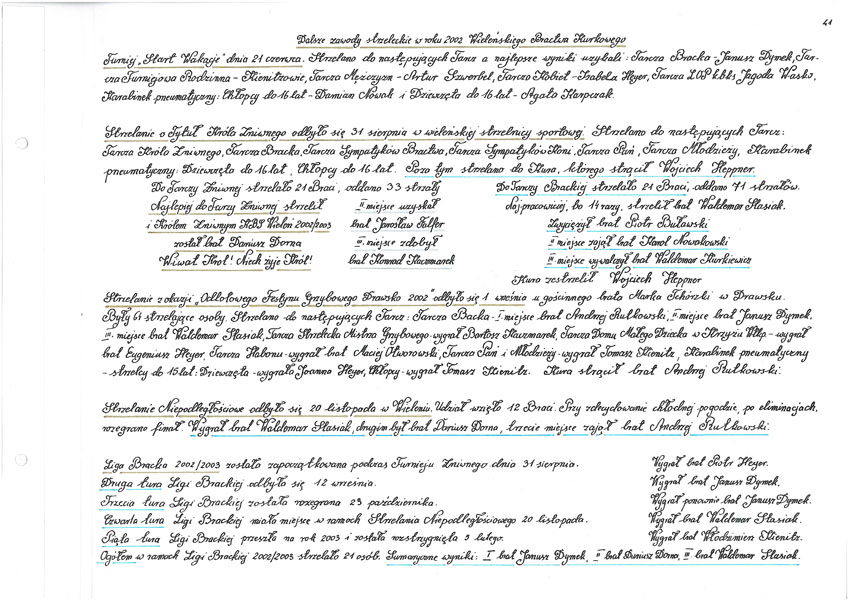 41
Dalsze zawody strzeleckie w roku 2002 Wieleńskiego Bractwa Kurkowego
Turniej „Start Wakacje” dnia 21 czerwca. Strzelano do następujących Tarcz a najlepsze wyniki uzyskali: Tarcza Bracka - Janusz Dymek, Tar-
cza Turniejowa Rodzinna - Kienitzowie, Tarcza Mężczyzn - Artur Szwerbel, Tarcza Kobiet - Izabela Heyer, Tarcza LOP kbks Jagoda Wasko,
Karabinek pneumatyczny: Chłopcy do 16 lat - Damian Nowak i Dziewczęta do 16 lat - Agata Karpczak.
Strzelanie o Tytuł Króla Żniwnego odbyło się 31 sierpnia w wieleńskiej strzelnicy sportowej. Strzelano do następujących Tarcz:
Tarcza Króla Żniwnego, Tarcza Bracka, Tarcza Sympatyków Bractwa, Tarcza Sympatyków Koni, Tarcza Pań, Tarcza Młodzieży, Karabinek
pneumatyczny: Dziewczęta do 16 lat, Chłopcy do 16 lat. Poza tym strzelano do Kura, którego strącił Wojciech Heppner.
Do Tarczy Żniwnej strzelało 21 Braci, oddano 33 strzały
Najlepiej do Tarczy Żniwnej strzelił
i Królem Żniwnym KBS Wieleń 2002/2003
został brat Dariusz Dorna
Wiwat Król! Niech żyje Król!
II miejsce uzyskał
brat Jarosław Falfer
III. miejsce zdobył
brat Konrad Kaczmarek
Do Tarczy Brackiej strzelało 21 Braci, oddano 71 strzałów.
Najpracowiciej, bo 14 razy, strzelił brat Waldemar Stasiak.
Zwyciężył brat Piotr Buławski
II miejsce zajął brat Karol Nowakowski
III miejsce wywalczył brat Waldemar Kurkiewicz
Kura zestrzelił Wojciech Heppner
Strzelanie z okazji „Odlotowego Festynu Grzybowego Drawsko 2002” odbyło się 1 września u gościnnego brata Marka Tchórzki w Drawsku.
Były 61 strzelające osoby. Strzelano do następujących Tarcz: Tarcza Backa - I miejsce brat Andrzej Rutkowski, II miejsce brat Janusz Dymek,
III. miejsce brat Waldemar Stasiak, Tarcza Strzelecka Mistrza Grzybowego - wygrał Bartosz Kaczmarek, Tarcza Domu Małego Dziecka w Strzyżu Wlkp. - wygrał
brat Eugeniusz Heyer, Tarcza Habonu - wygrał brat Maciej Otworowski, Tarcza Pań i Młodzieży - wygrał Tomasz Kienitz, Karabinek pneumatyczny
- strzelcy do 15 lat: Dziewczęta - wygrała Joanna Heyer, Chłopcy - wygrał Tomasz Kienitz. Kura strącił brat Andrzej Rutkowski.
Strzelanie Niepodległościowe odbyło się 20 listopada w Wieleniu. Udział wzięło 12 Braci. Przy zdecydowanie chłodnej pogodzie, po eliminacjach,
rozegrano finał. Wygrał brat Waldemar Stasiak, drugim był brat Dariusz Dorna, trzecie miejsce zajął brat Andrzej Rutkowski.
Liga Bracka 2002/2003 została zapoczątkowana podczas Turnieju Żniwnego dnia 31 sierpnia. Wygrał brat Piotr Heyer.
Druga tura Ligi Brackiej odbyło się 12 września. Wygrał brat Janusz Dymek.
Trzecia tura Ligi Brackiej została rozegrana 23 października. Wygrał ponownie brat Janusz Dymek.
Czwarta tura Ligi Brackiej miała miejsce w ramach Strzelania Niepodległościowego 20 listopada. Wygrał brat Waldemar Stasiak.
Piąta tura Ligi Brackiej przeszła na rok 2003 i została rozstrzygnięta 9 lutego. Wygrał brat Włodzimierz Kienitz.
Ogółem w ramach Ligi Brackiej 2002/2003 strzelało 21 osób. Sumaryczne wyniki: I brat Janusz Dymek, II brat Dariusz Dorna, III brat Waldemar Stasiak.